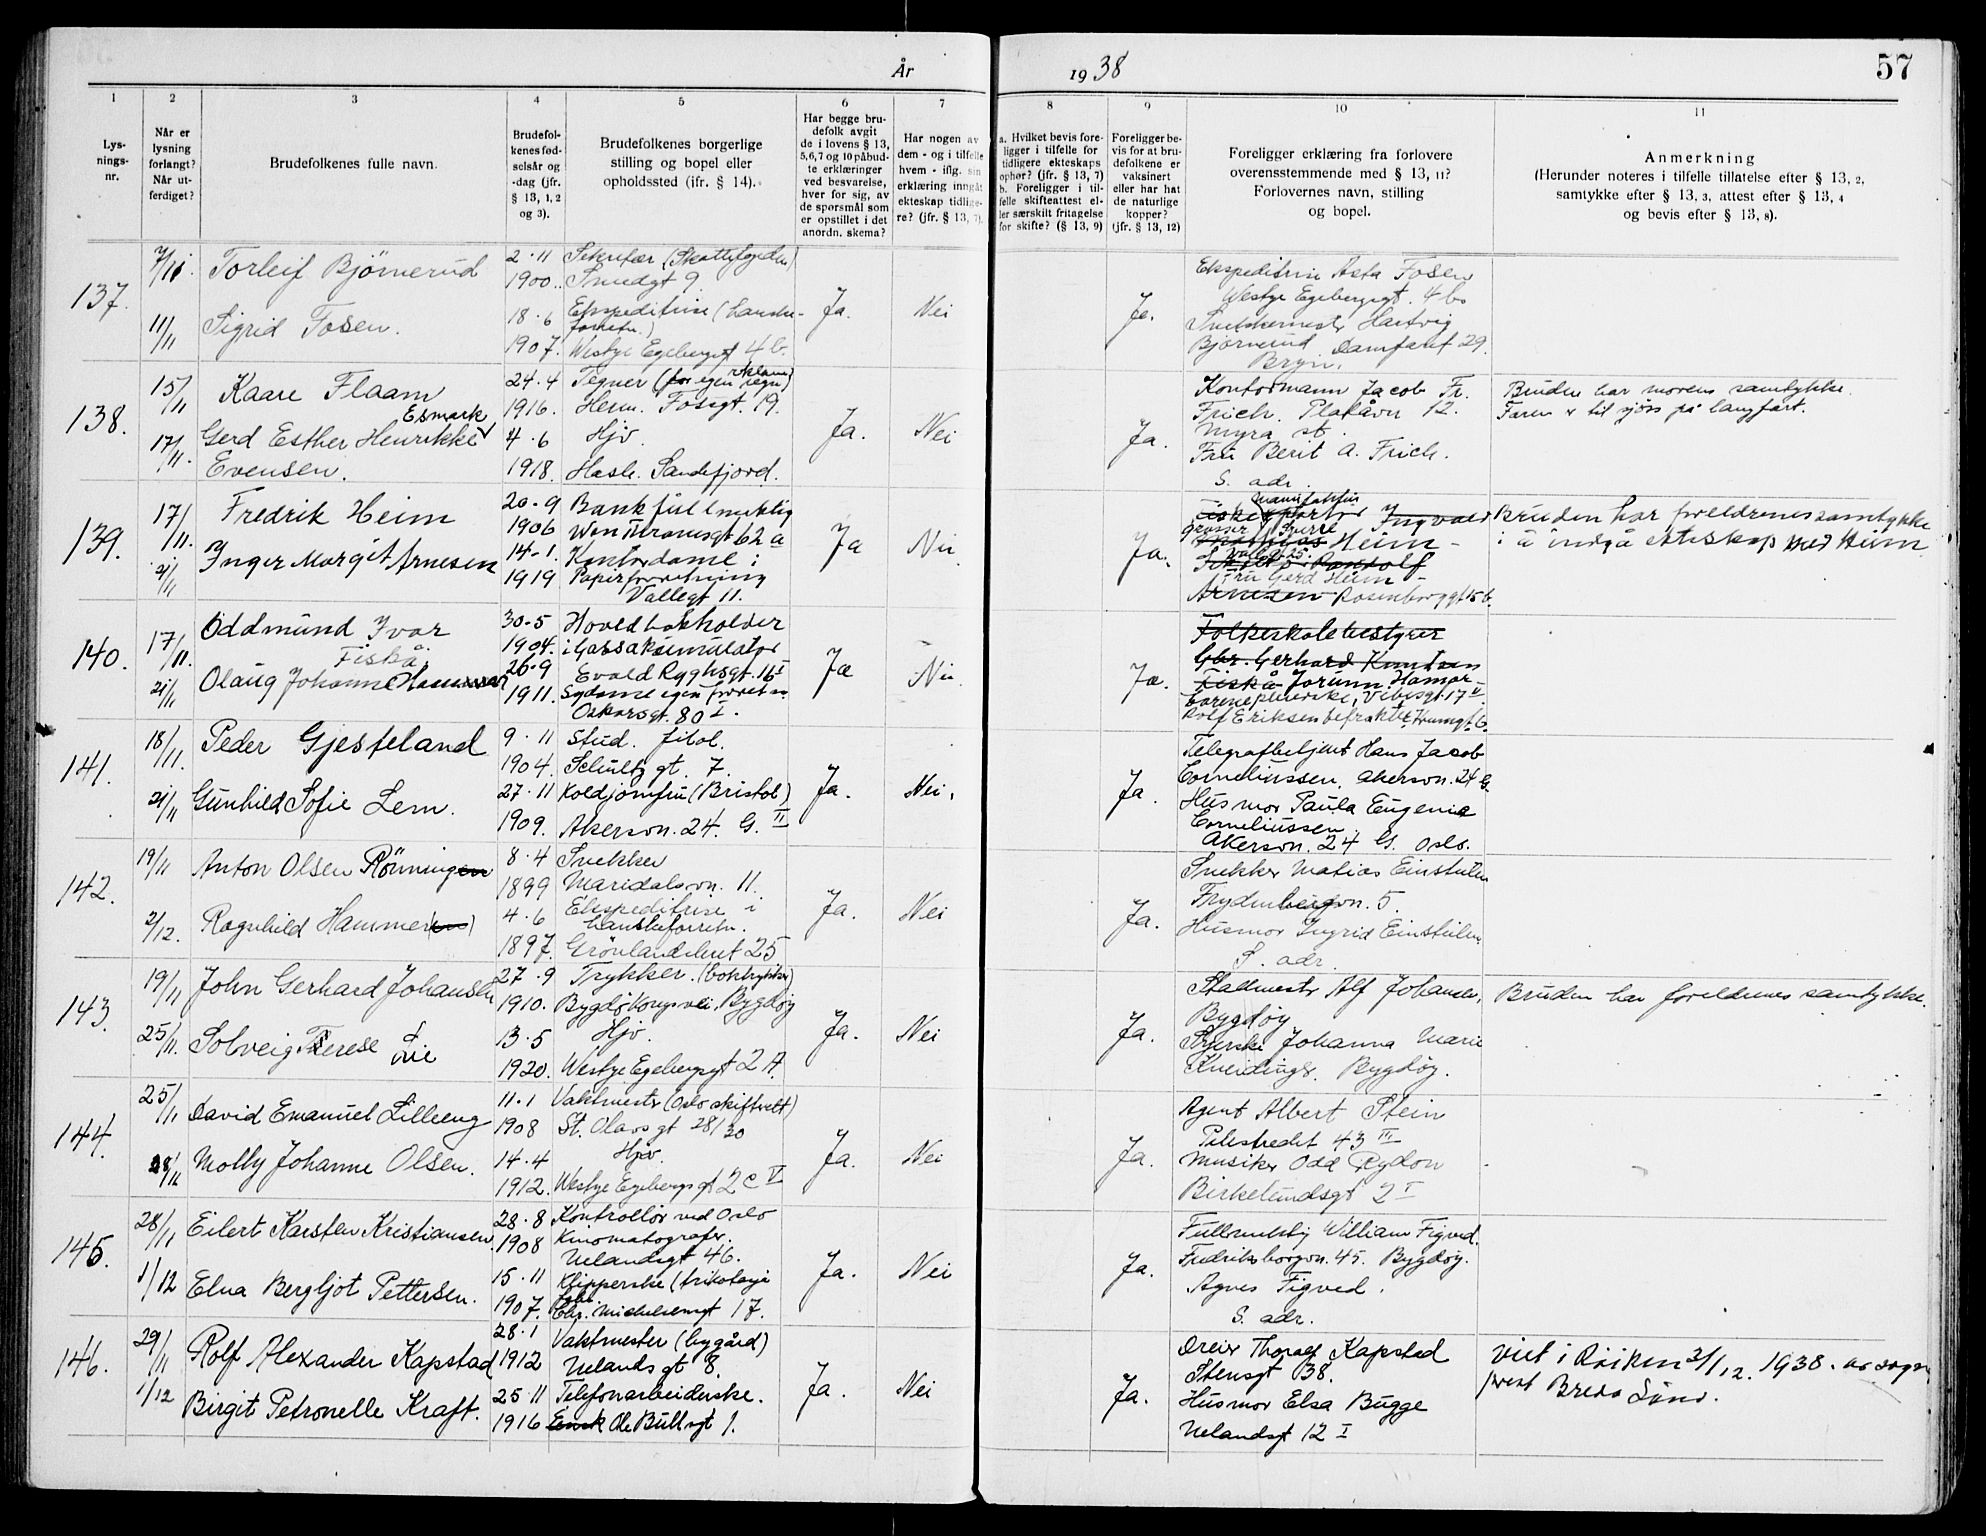 År 1938
57
1 2 3 4 5 6 7 8 9 10 11
Lys-
nings-
nr.
Når er
lysning
forlangt?
Når ut-
ferdiget?
Brudefolkenes fulle navn.
Brudefol-
kenes fød-
selsår og
-dag (jfr.
§ 13, 1, 2
og 3).
Brudefolkenes borgerlige
stilling og bopel eller
opholdssted (ifr. § 14).
Har begge bru-
defolk avgit
de i lovens § 13,
5,6,7 og 10 påbud-
te erklæringer
ved besvarelse,
hver for sig, av
de spørsmål som
er opstillet i det
anordn. skema?
Har nogen av
dem - og i tilfelle
hvem - iflg. sin
erklæring inngåt
ekteskap tidlige-
re? (jfr. § 13, 7).
a. Hvilket bevis fore-
ligger i tilfelle for
tidligere ekteskaps
ophør? (jfr. § 13, 7)
b. Foreligger i til-
felle skifteattest el-
ler særskilt fritagelse
for skifte? (§ 13, 9)
Foreligger be-
vis for at bru-
defolkene er
vaksinert
eller har hat
de naturlige
kopper?
(jfr. § 13, 12)
Foreligger erklæring fra forlovere
overensstemmende med § 13, 11?
Forlovernes navn, stilling
og bopel.
Anmerkning
(Herunder noteres i tilfelle tillatelse efter § 13, 2,
samtykke efter § 13, 3, attest efter § 13, 4
og bevis efter § 13, 8).
137.
7/11
Torleif Bjørnerud
2.11
1900.
Sekretær (Skattefogden)
Smedgt 9.
11/11
Sigrid Fosen.
18.6
1907.
Ekspeditrise (hanske-
forretn.)
Westye Egebergsgt 4 b.
Ja.
Nei
Ja.
Ekspeditrise Asta Fosen
Westye Egebergsgt. 4 b.
Snekkermester Hartvig
Bjørnerud Damfaret 29.
Bryn.
138.
15/11
Kaare Flaam
24.4
1916.
Tegner (for egen regn)
Herm. Fossgt. 19.
17/11.
Esmark
Gerd Esther Henrikke
Evensen.
4.6
1918.
Hjv.
Hasle. Sandefjord.
Ja.
Nei
Ja.
Kontormann Jacob Fr.
Frich. Plataavn 12.
Myra st.
Fru Berit A. Frich.
S. adr.
Bruden har morens samtykke.
Faren er til sjøss på langfart.
139.
17/11.
Fredrik Heim
20-9
1906
Bankfullmektig
Wm Thranesgt 62 a
21/11
Inger Margit Arnesen
14-1.
1919
Kontordame i
Papirforretning
Vallegt 11.
Ja
Nei
Ja.
Manufaktur
Ingvald
grosser Sverre
Heim -
Vallegt 25
Fru Gerd Heim -
Arnesen Rosenborggt 15 b.
Bruden har foreldrenes samtykke
i å indgå ekteskap med Heim
140.
17/11.
Oddmund Ivar
Fiskå.
30-5
1904.
Hovedbokholder
i Gassakumulator
Evald Ryghsgt. 16 I
21/11
Olaug Johanne Hamar
26.9
1911.
Sydame egen forretn
Oskarsgt. 80 I.
Ja
Nei
Ja.
Folkeskolebestyrer
Gbr. Gerhard Knutsen
Fiskå Jorunn Hamar
barnepleierske, Vibesgt. 17 II
Rolf Eriksen befrakter,
141.
18/11.
Peder Gjesteland
9.11
1904.
Stud. filol.
Schultz gt. 7.
21/11
Gunhild Sofie Lem.
27.11
1909.
Koldjomfru (Bristol)
Akersvn. 24. G. II
Ja.
Nei.
Ja.
Telegrafbetjent Hans Jacob
Corneliussen, Akersvn. 24 G.
Husmor Paula Eugenia
Corneliussen
Akersvn. 24 G. Oslo.
142.
19/11
Anton Olsen Rønningen
8.4
1899
Snekker
Maridalsvn. 11.
2/12.
Ragnhild Hammer(en)
4.6
1897.
Ekspeditrise i
hanskeforretn.
Grønlandsleret 25
Ja.
Nei
Ja.
Snekker Matias Einstulen
Frydenbergvn. 5.
Husmor Ingrid Einstulen
S. adr.
143.
19/11
John Gerhard Johansen
27.9
1910.
Trykker. (boktrykker)
Bygdø Kongsvei. Bygdøy
25/11.
Solveig Therese Lie
13.5
1920.
Hjv.
Westye Egebergsgt 2 A.
Ja.
Nei
Ja.
Stallmester Alf Johansen,
Bygdøy
Johanna Marie
Bygdøy.
Bruden har foreldrenes samtykke.
144.
25/11
David Emanuel Lilleeng
11.1
1908
Vaktmester (Oslo skifterett)
St. Olavs gt 28/30
28/11
Molly Johanne Olsen.
14.4
1912.
Hjv.
Westye Egebergs gt 2 c V
Ja.
Nei
Ja.
Agent Albert Stein
Pilestredet 43 III
Musiker Odd Rydon
Birkelundsgt 2 I
145.
28/11
Eilert Karsten Kristiansen
28.8
1908
Kontrollør ved Oslo
Kinomatografer.
Uelandsgt 46.
1/12
Elna Bergljot Pettersen.
15.11
1907.
Klipperske (trikotasje
fabr.
Chr. Michelsensgt 17.
Ja.
Nei
Ja.
Fullmektig William Figved.
Fredriksborgvn. 45. Bygdøy.
Agnes Figved.
S. adr.
146.
29/11
Rolf Alexander Kapstad
28.1
1912
Vaktmester (bygård)
Uelands gt 8.
1/12
Birgit Petronelle Kraft.
25.11
1916
Telefonarbeiderske.
Ole Bullsgt 1.
Ja.
Nei
Ja.
Dreier Thoralf Kapstad
Stensgt 38.
Husmor Elsa Bugge
Uelandsgt 12 I
Viet i Røiken 3/12. 1938. av sogne
prest Bredo Lind.